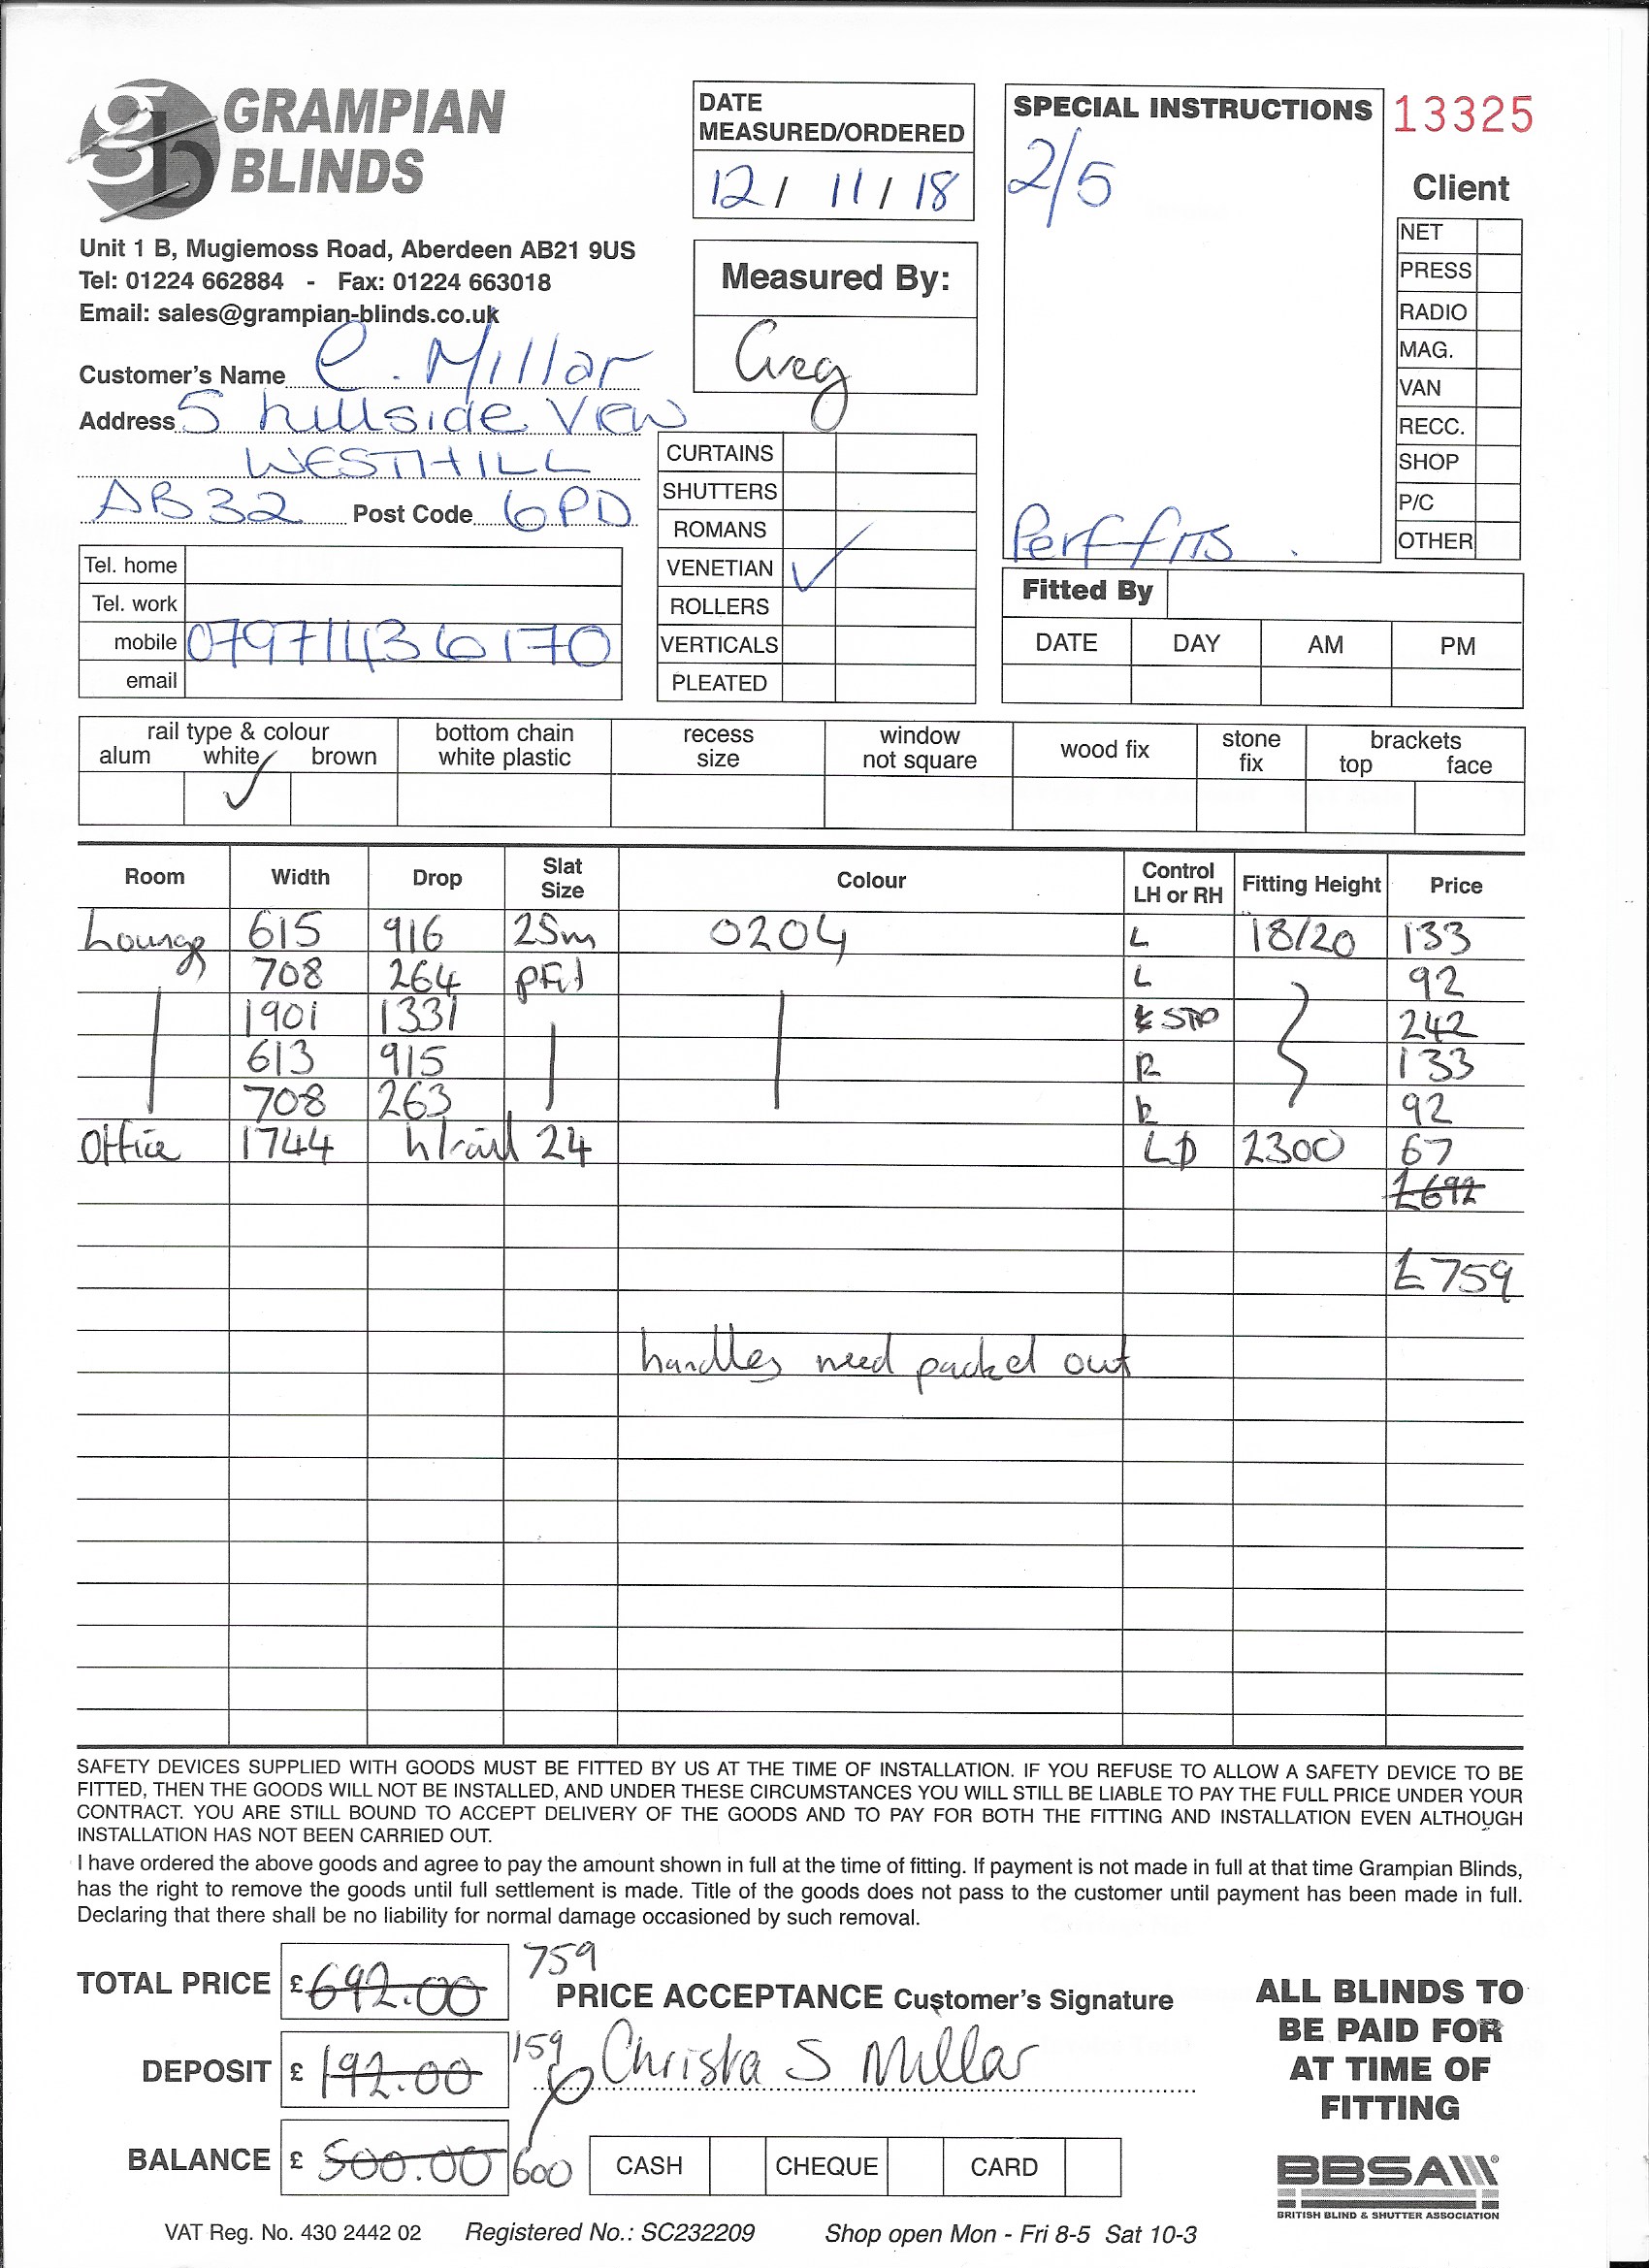 GRAMPIAN
BLINDS
Unit 1 B, Mugiemoss Road, Aberdeen AB21 9US
Tel: 01224 662884 - Fax: 01224 663018
Email: sales@grampian-blinds.co.uk
DATE
MEASURED/ORDERED
12/ 11/ 18
Measured By:
Greg
SPECIAL INSTRUCTIONS
2/5
Perf fits.
13325
Client
NET
PRESS
RADIO
MAG.
VAN
RECC.
SHOP
P/C
OTHER
Customer's Name C. Millar
Address 5 hillside View
WESTHILL
AB32 Post Code 6PD
Tel. home
Tel. work
mobile 07971436170
email
CURTAINS
SHUTTERS
ROMANS
VENETIAN ✓
ROLLERS
VERTICALS
PLEATED
Fitted By
DATE DAY AM PM
rail type & colour
alum white brown
✓
bottom chain
white plastic
recess
size
window
not square
wood fix
stone
fix
brackets
top face
Room Width Drop Slat Size Colour Control LH or RH Fitting Height Price
Lounge 615 916 25m 0204 L 18/20 133
708 264 pfit L 92
1901 1331 STP 242
613 915 R 133
708 263 R 92
Office 1744 h/rail 24 LD 2300 67
£692
£759
handles need packed out
SAFETY DEVICES SUPPLIED WITH GOODS MUST BE FITTED BY US AT THE TIME OF INSTALLATION. IF YOU REFUSE TO ALLOW A SAFETY DEVICE TO BE
FITTED, THEN THE GOODS WILL NOT BE INSTALLED, AND UNDER THESE CIRCUMSTANCES YOU WILL STILL BE LIABLE TO PAY THE FULL PRICE UNDER YOUR
CONTRACT. YOU ARE STILL BOUND TO ACCEPT DELIVERY OF THE GOODS AND TO PAY FOR BOTH THE FITTING AND INSTALLATION EVEN ALTHOUGH
INSTALLATION HAS NOT BEEN CARRIED OUT.
I have ordered the above goods and agree to pay the amount shown in full at the time of fitting. If payment is not made in full at that time Grampian Blinds,
has the right to remove the goods until full settlement is made. Title of the goods does not pass to the customer until payment has been made in full.
Declaring that there shall be no liability for normal damage occasioned by such removal.
TOTAL PRICE £692.00 759
PRICE ACCEPTANCE Customer's Signature
DEPOSIT £192.00 159
Christa S Millar
BALANCE £500.00 600
CASH CHEQUE CARD
ALL BLINDS TO
BE PAID FOR
AT TIME OF
FITTING
BBSA
BRITISH BLIND & SHUTTER ASSOCIATION
VAT Reg. No. 430 2442 02 Registered No.: SC232209 Shop open Mon - Fri 8-5 Sat 10-3